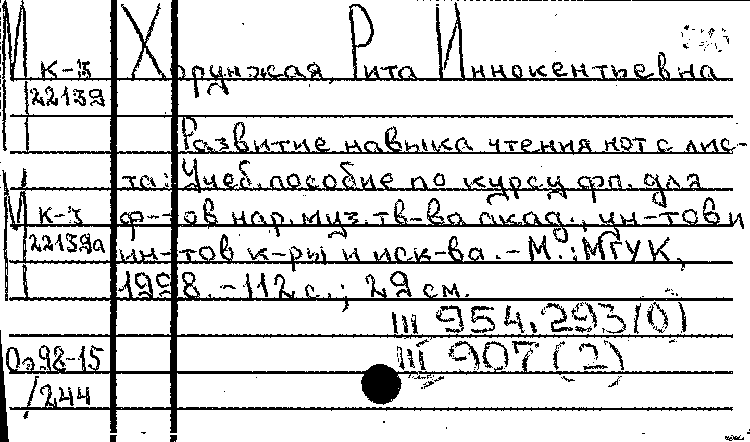 М К-3 22139
Хорунжая, Рита Иннокентьевна
Развитие навыка чтения нот с лис-
та: Учеб. пособие по курсу фп. для
М К-3 22139а
ф-тов нар. муз. тв-ва акад., ун-тов и
ин-тов к-ры и иск-ва. - М.: МГУК,
1998. - 112 с.; 29 см.
III 954.293(0)
Оэ98-15
/244
III 907 (2)